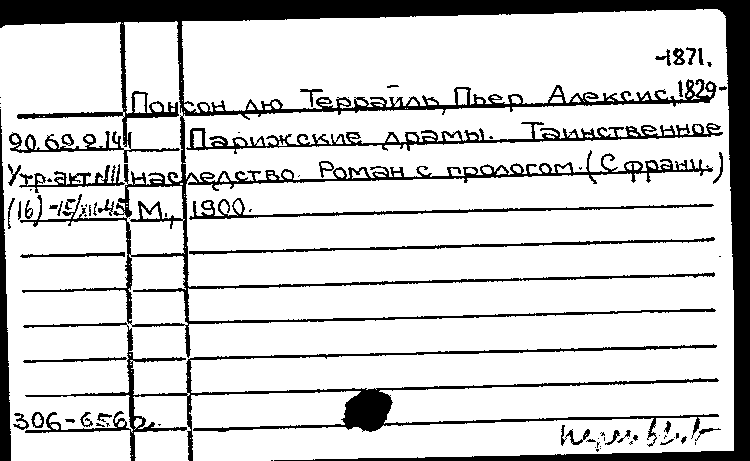 -1871.
Понсон дю Террайль, Пьер Алексис, 1829-
90.69.9.141 Парижские драмы. Таинственное
Утр. акт №III наследство. Роман с прологом. (С франц.)
(16)-15/XII-45. М., 1900.
306-656